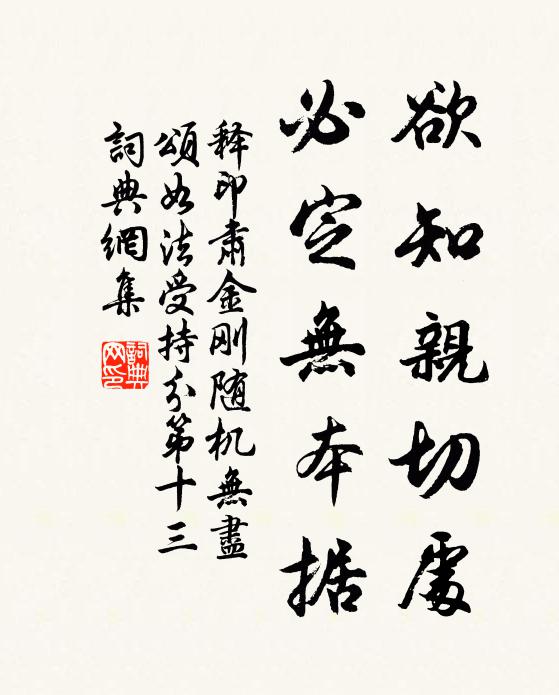 欲知親切處
必定無本据
释印肅金刚随机無盡
頌如法受持分第十三
詞典網集
詞典网印